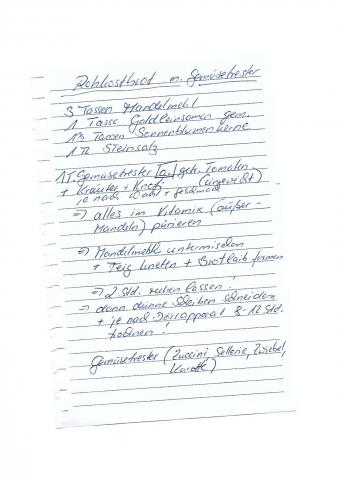 Rohkostbrot m. Gemüsetrester
3 Tassen Mandelmehl
1 Tasse Goldleinsamen gem.
1½ Tassen Sonnenblumenkerne
1 TL Steinsalz
1 T. Gemüsetrester getr. Tomaten
+ Kräuter + (eingeweicht)
je nach + Geschmack
⇒ alles im Vitamix (außer
Mandeln) pürieren
⇒ Mandelmehl untermischen
+ Teig kneten + Brotlaib formen
⇒ 2 Std. ruhen lassen.
⇒ dann dünne Scheiben schneiden
+ je nach Dörrapparat 8-12 Std.
trocknen!
Gemüsetrester (Zuccini, Sellerie, Zwiebel,
Karotte)